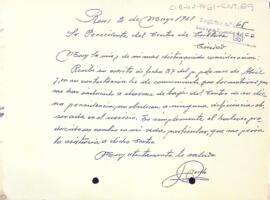 C.E-U1-1961-ENT.69
Reus 2 de Mayo 1961
Sr. Presidente del Centro de Lectura
Ciudad
Muy Sr. mio y de mi mas distinguida consideración:
Recibí su escrito de fecha 27 del p. pdo. mes de Abril
y, en su contestación he de comunicarle que los motivos que
me han inducido a darme de baja del Centro de su dig
na presidencia, no obedecen a ninguna deficiencia ob
servada en el mismo. Es simplemente el haberse pro
ducido un cambio en mi vida particular, que me priva
la asistencia a dicho Centro.
Muy atentamente le saluda